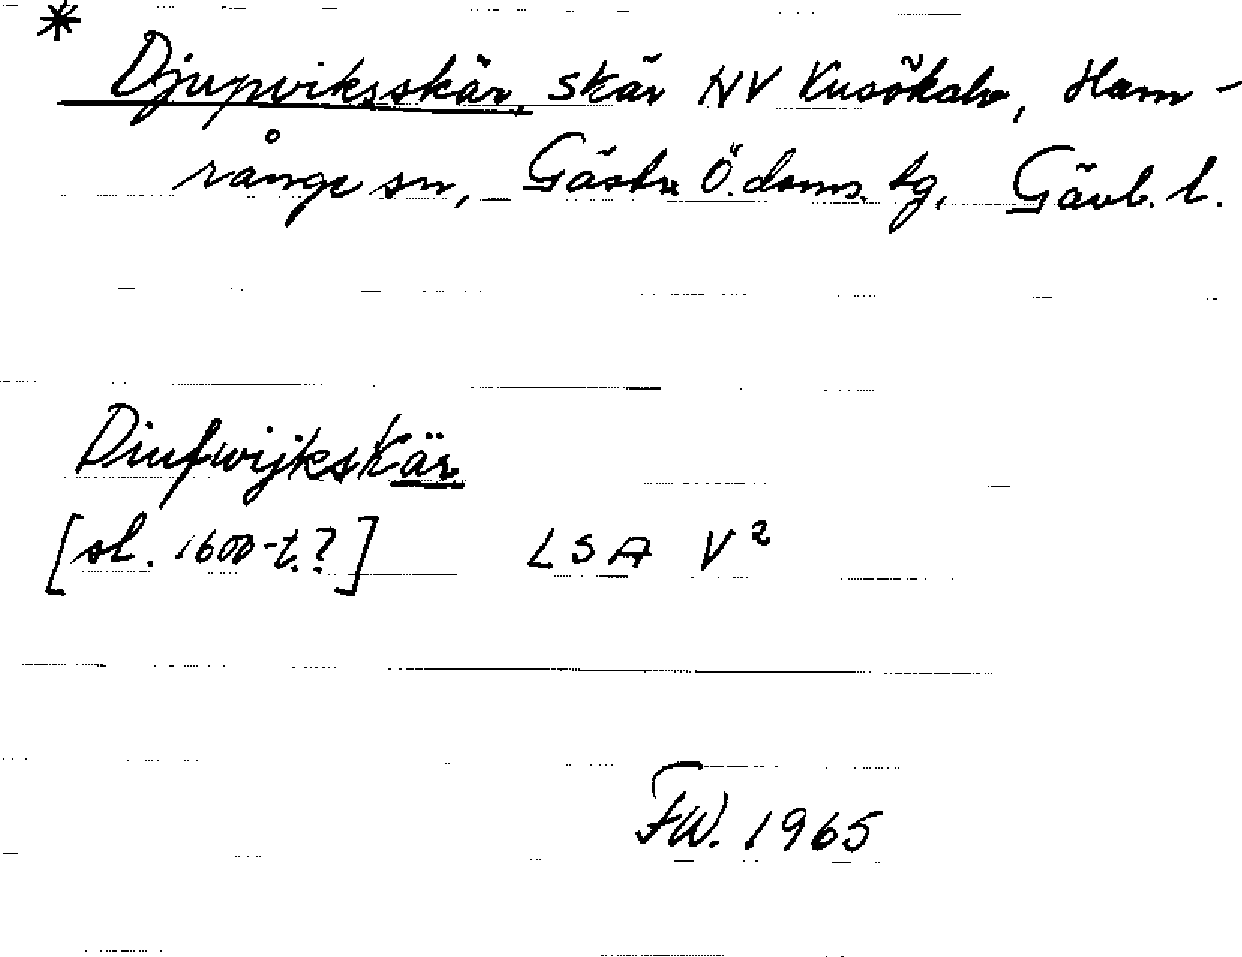 *
Djupviksskär, skär NV Kusökalv, Ham-
rånge sn, Gästr. Ö. doms. tg, Gävl. l.
Diufwijkskär
[sl. 1600-t.?] LSA V²
FW. 1965